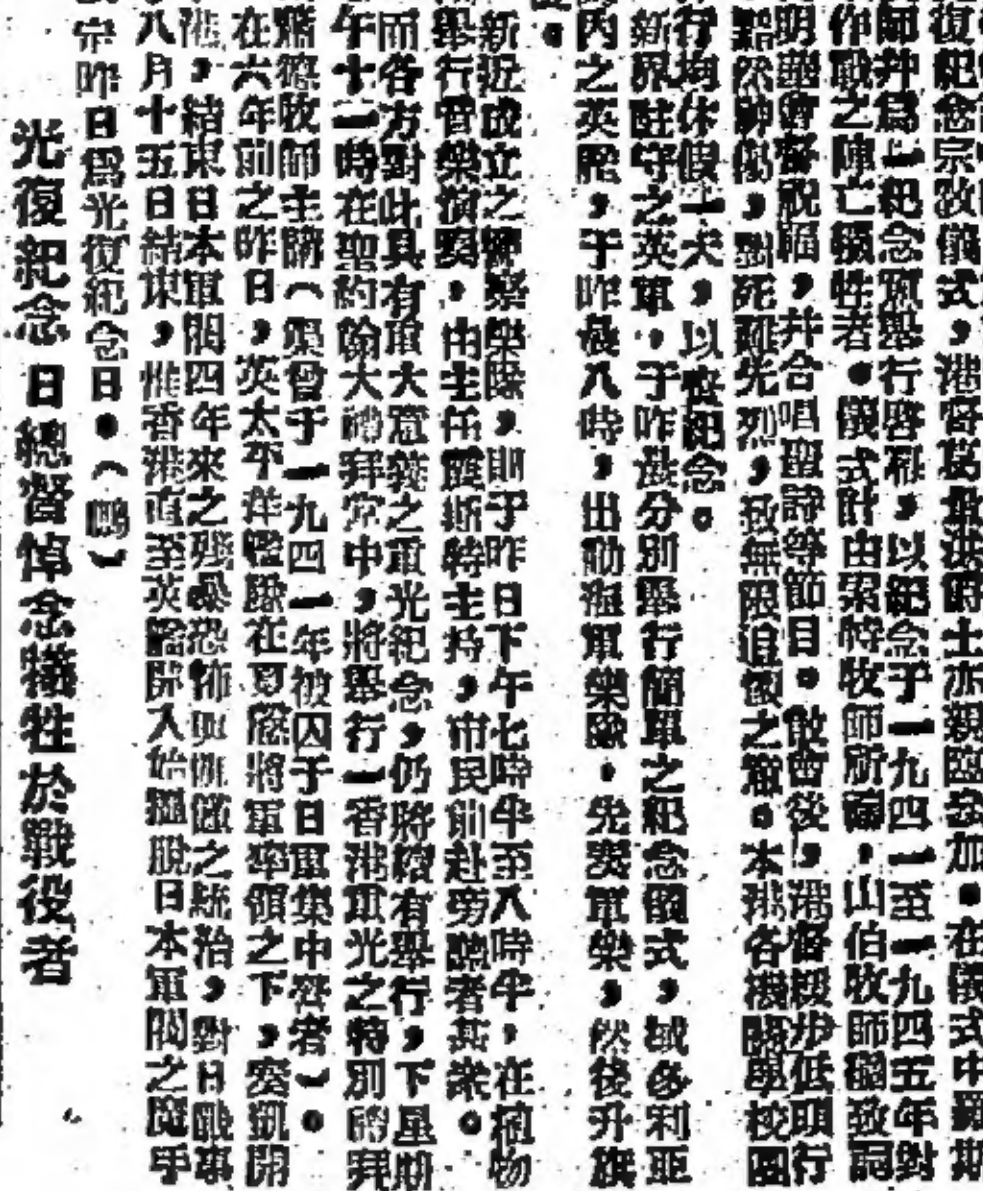 復紀念宗教儀式，港督葛量洪爵士亦親臨參加。在儀式中羅斯
師幷爲一紀念碑舉行啓幕，以紀念于一九四一至一九四五年對
作戰之陣亡犧牲者。儀式計由牧師所，山伯牧師繼致詞
明祝福，并合唱聖詩等節目。散會後，港督緩步低頭行
黯然神傷，對死難先烈，致無限追懷之意。本港各機關學校團
行均休假一天，以資紀念。
新界駐守之英軍，于昨晨分別舉行簡單之紀念儀式，域多利亞
內之英艦，于昨晨八時，出動海軍樂隊，先奏軍樂，然後升旗
。
新近成立之警察樂隊，則于昨日下午七時半至八時半，在植物
舉行音樂演奏，由主任斯特主持，市民前赴旁聽者甚衆。
而各方對此具有重大意義之重光紀念，仍將續有舉行，下星期
午十一時在聖約翰大禮拜堂中，將舉行一香港重光之特別禮拜
牧師主講（渠曾于一九四一年被囚于日軍集中營者）。
在六年前之昨日，英太平洋艦隊在夏慤將軍率領之下，奏凱開
港，結束日本軍閥四年來之殘暴恐怖與慘酷之統治，對日戰事
八月十五日結束，惟香港直至英艦隊入始擺脫日本軍閥之魔手
宗昨日爲光復紀念日。（鵬）
光復紀念日總督悼念犧牲於戰役者